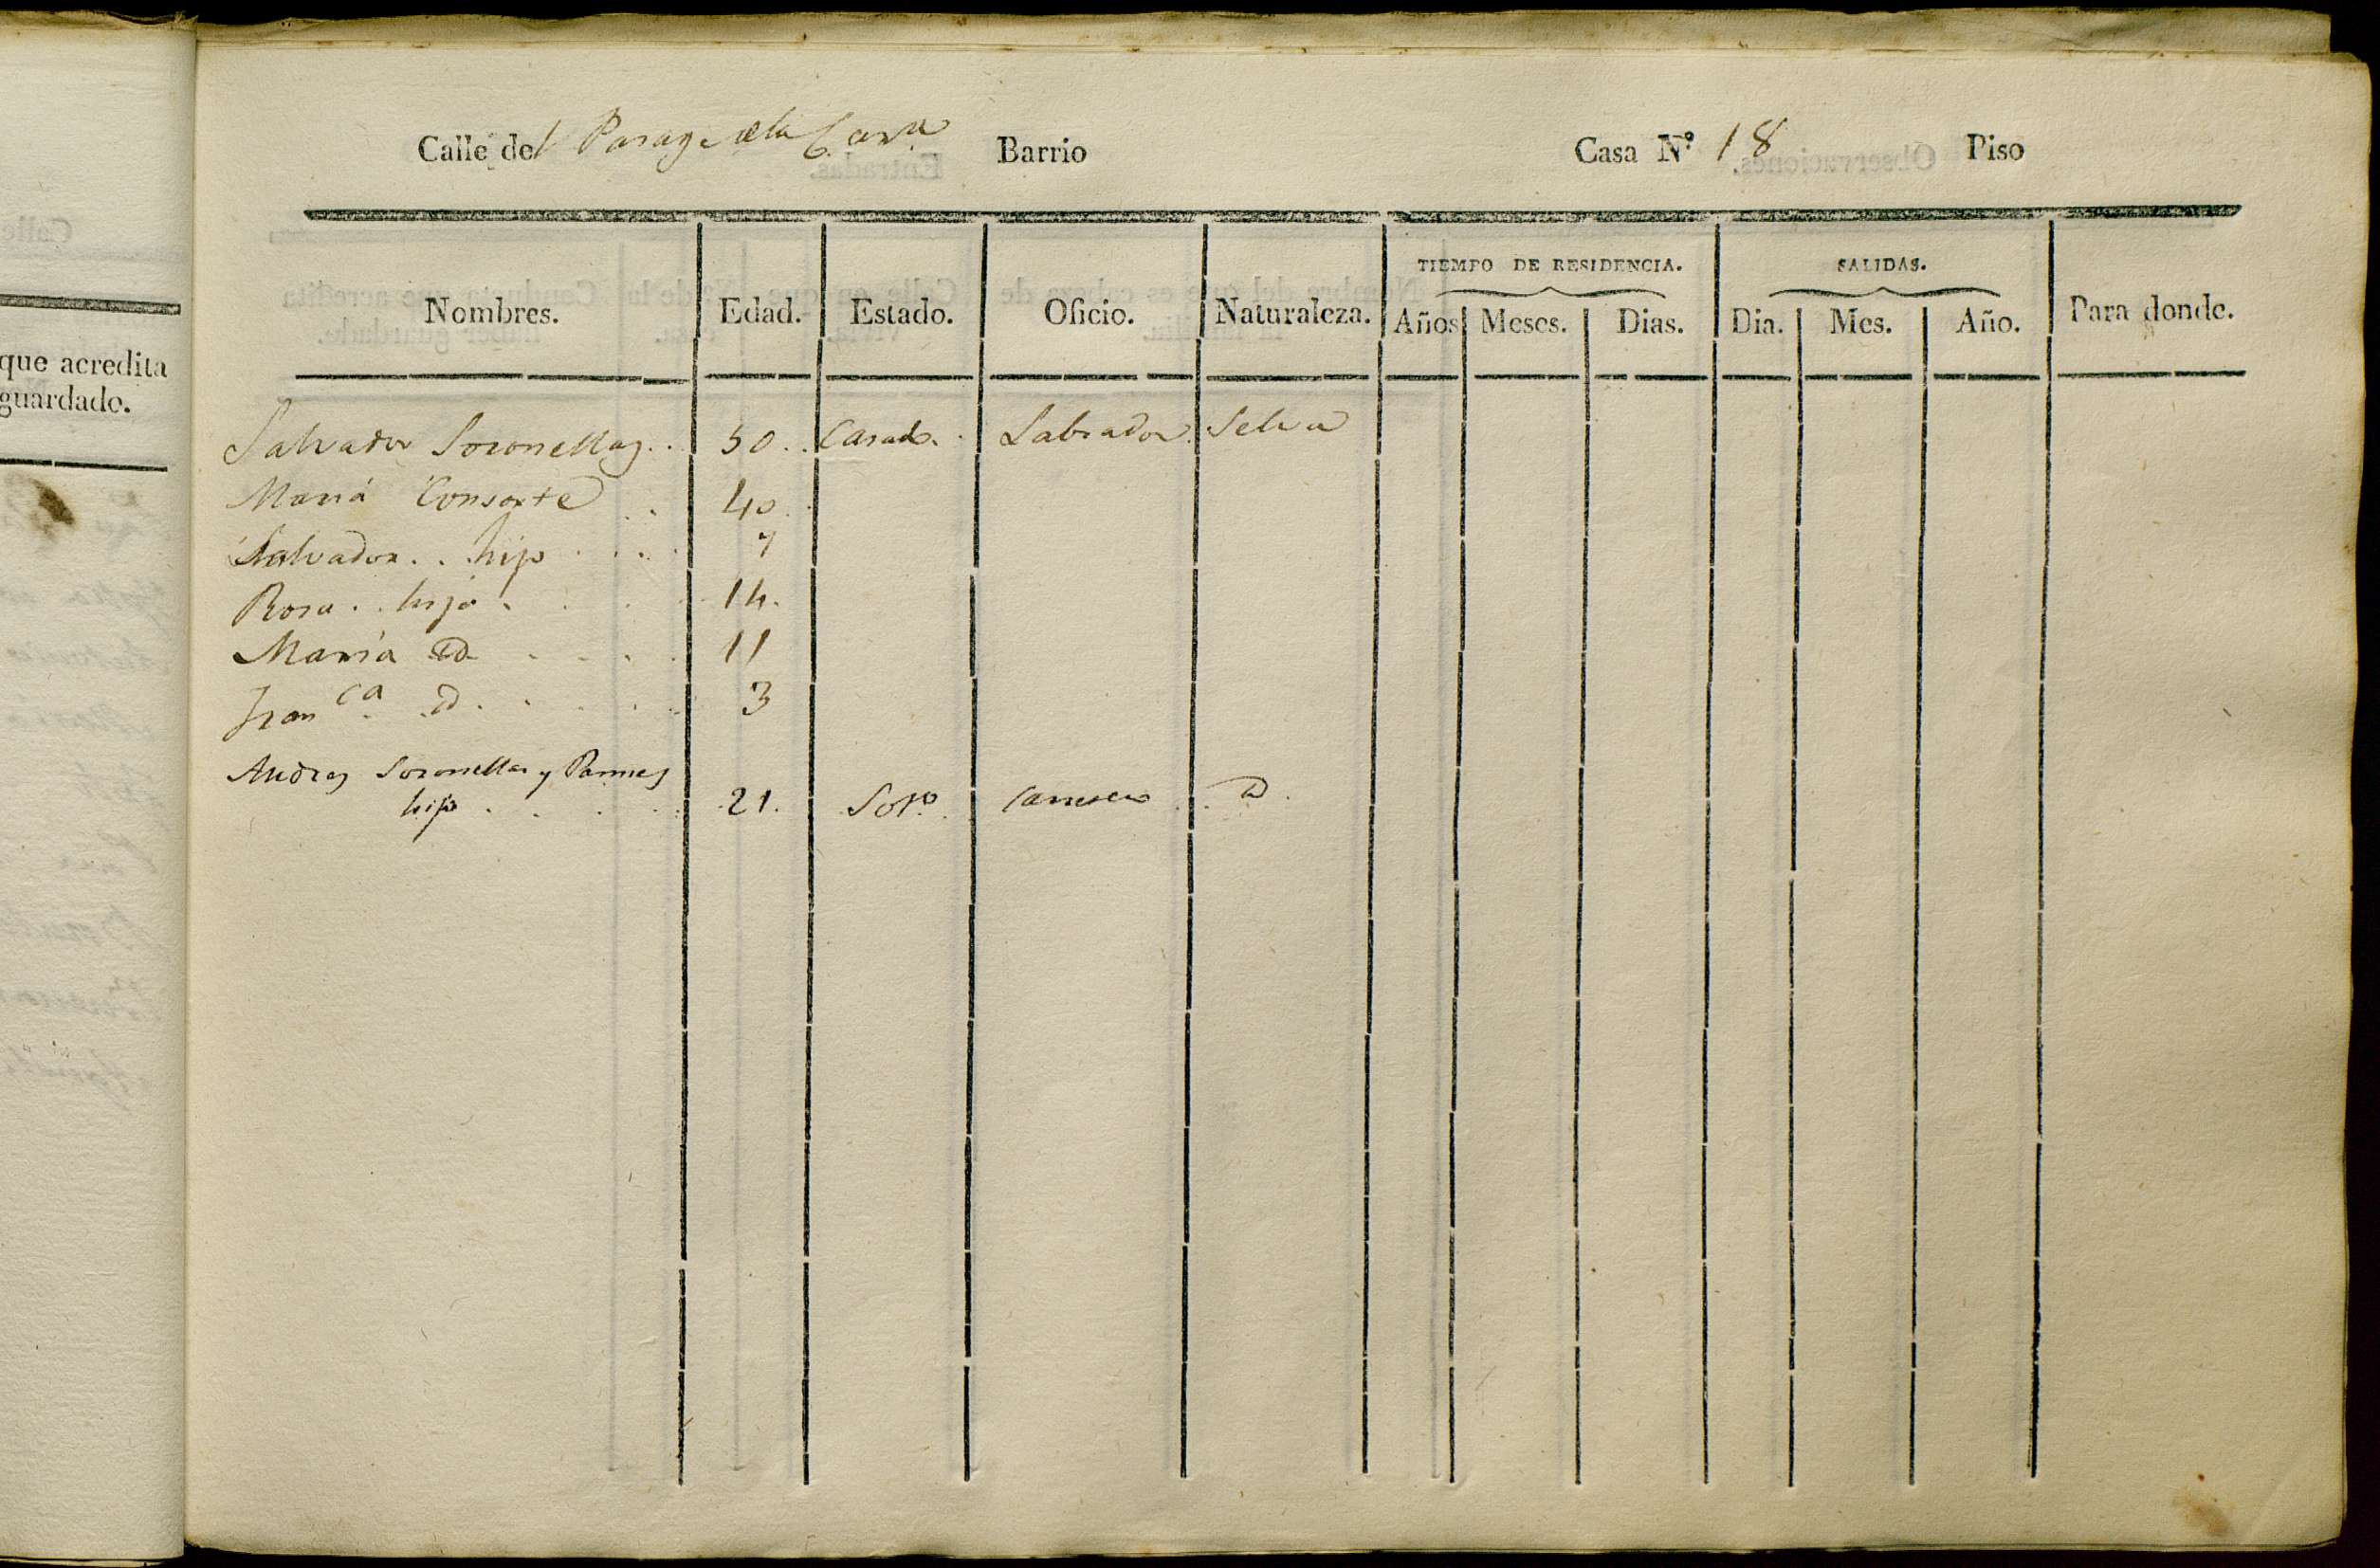 Calle del Parage de la Barrio Casa Nº 18 Piso
TIEMPO DE RESIDENCIA. SALIDAS.
Nombres. Edad. Estado. Oficio. Naturaleza. Años Meses. Dias. Dia. Mes. Año. Para donde.
que acredita
guardado.
Salvador Soronellas.. 50.. Casado. Labrador. Selva
María Consorte .. 40.
Salvador.. hijo .... 7
Rosa.. hija. . . 14.
María Id ..... 11
Franca. Id ..... 3
Andres Soronellas y
hijo .... 21. Solo. . D.